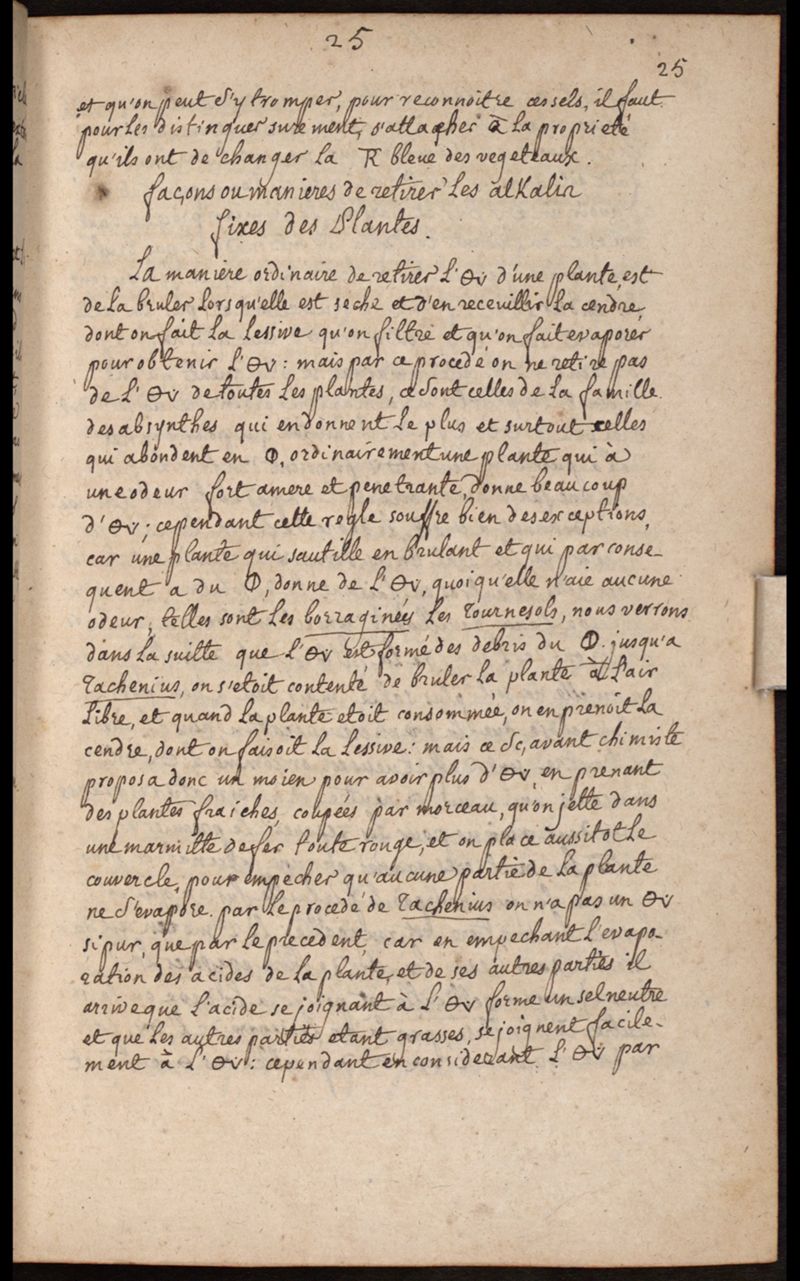 25
25
et qu'on peut s'y tromper, pour reconnoitre ces sels, il faut
pour les distinguer surement, s'attacher à la proprieté
qu'ils ont de changer la R bleue des vegeteaux.
façons ou manieres de retirer les alkalis
fixes des Plantes.
La maniere ordinaire de retirer l'🜘 d'une plante, est
de la bruler lorsqu'elle est seche et d'en recevillir la cendre,
dont on fait la lessive qu'on filtre et qu'on fait evaporer
pour obtenir l'🜘 : mais par ce procedé on ne retire pas
de l'🜘 de toutes les plantes, ce sont celles de la famille
des absynthes qui en donnent le plus et surtout celles
qui abondent en 🜕, ordinairement une plante qui à
une odeur fort amere et penetrante, donne beaucoup
d'🜘; cependant cette regle souffre bien des exceptions,
car une plante qui sautille en brulant et qui par conse-
quent a du 🜕, donne de l'🜘, quoiqu'elle n'aie aucune
odeur, telles sont les borraginées les Tournesols, nous verrons
dans la suitte que l'🜘 est formé des debris du 🜕. jusqu'a
Tachenius, on s'etoit contenté de bruler la plante à l'air
libre, et quand la plante etoit consommée, on en prenoit la
cendre, dont on faisoit la lessive : mais ce sçavant chimiste
proposa donc un moien pour avoir plus d'🜘, en prenant
des plantes fraiches, coupées par morceau, qu'on jette dans
une marmitte de fer toute rouge, et on place aussitot le
couvercle, pour empècher qu'aucune partie de la plante
ne s'evapore. par le procedé de Tachenius on n'a pas un 🜘
si pur, que par le precedent, car en empechant l'evapo-
ration des acides de la plante, et de ses autres parties il
arrive que l'acide se joignant à l'🜘 forme un sel neutre
et que les autres parties etant grasses, se joignent facile-
ment à l'🜘 : cependant en considerant l'🜘 par